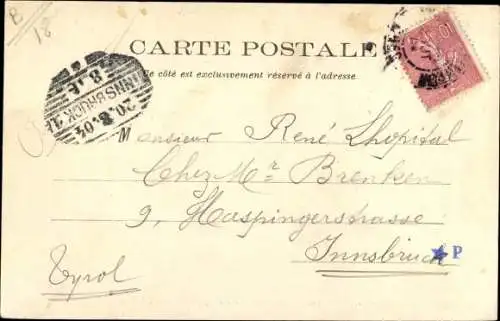 B
18
CARTE POSTALE
Ce côté est exclusivement réservé à l'adresse
INNSBRUCK
20.8.04
Monsieur René Lhopital
Chez Mr Brenken
9, Haspingerstrasse
Innsbruck
P
Tyrol